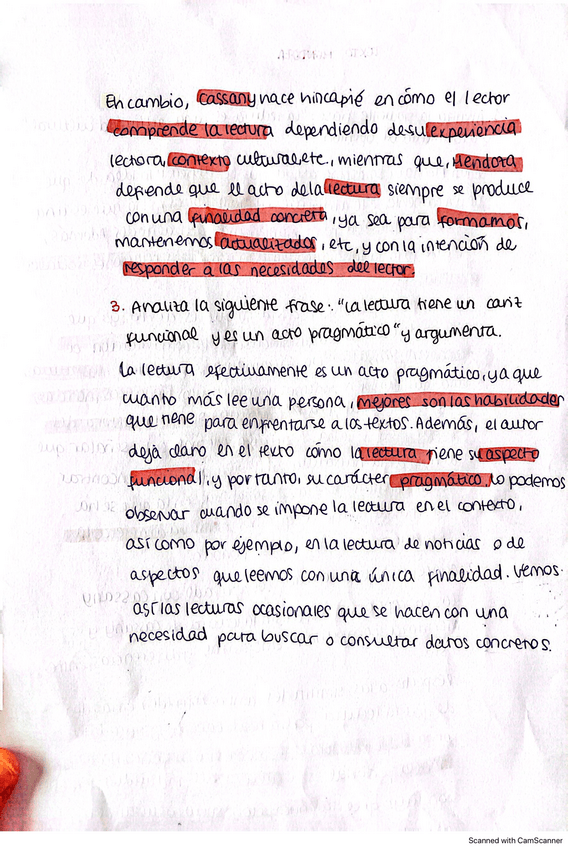 En cambio, Cassany hace hincapié en cómo el lector
comprende la lectura dependiendo de su experiencia
lectora, contexto cultural etc., mientras que, Mendoza
defiende que el acto de la lectura siempre se produce
con una finalidad concreta, ya sea para formarnos,
mantenernos actualizados, etc, y con la intención de
responder a las necesidades del lector.
3. Analiza la siguiente frase: "La lectura tiene un cariz
funcional y es un acto pragmático" y argumenta.
La lectura efectivamente es un acto pragmático, ya que
cuanto más lee una persona, mejores son las habilidades
que tiene para enfrentarse a los textos. Además, el autor
deja claro en el texto cómo la lectura tiene su aspecto
funcional, y por tanto, su carácter pragmático. Lo podemos
observar cuando se impone la lectura en el contexto,
así como por ejemplo, en la lectura de noticias o de
aspectos que leemos con una única finalidad. Vemos
así las lecturas ocasionales que se hacen con una
necesidad para buscar o consultar datos concretos.
Scanned with CamScanner